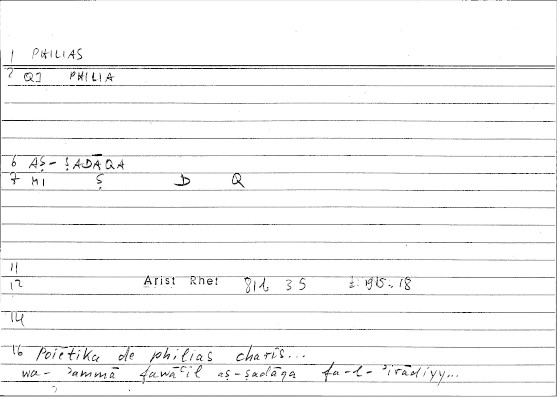 1 PHILIAS
2 QI PHILIA
6 AṢ-ṢADĀQA
7 MI Ṣ D Q
11
12 Arist Rhet 81b 35
14
16 Poiētika de philias charis...
wa-ʾammā fawāʿil aṣ-ṣadāqa fa-l-ʾirādiyy...